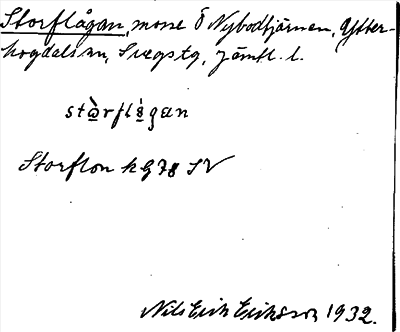 Storflågan, mosse Ö Nybodtjärnen, Ytter-
hogdals sn, Svegs tg, Jämtl. l.
Storflon kg 78 SV
Nils Erik Eriksson 1932.